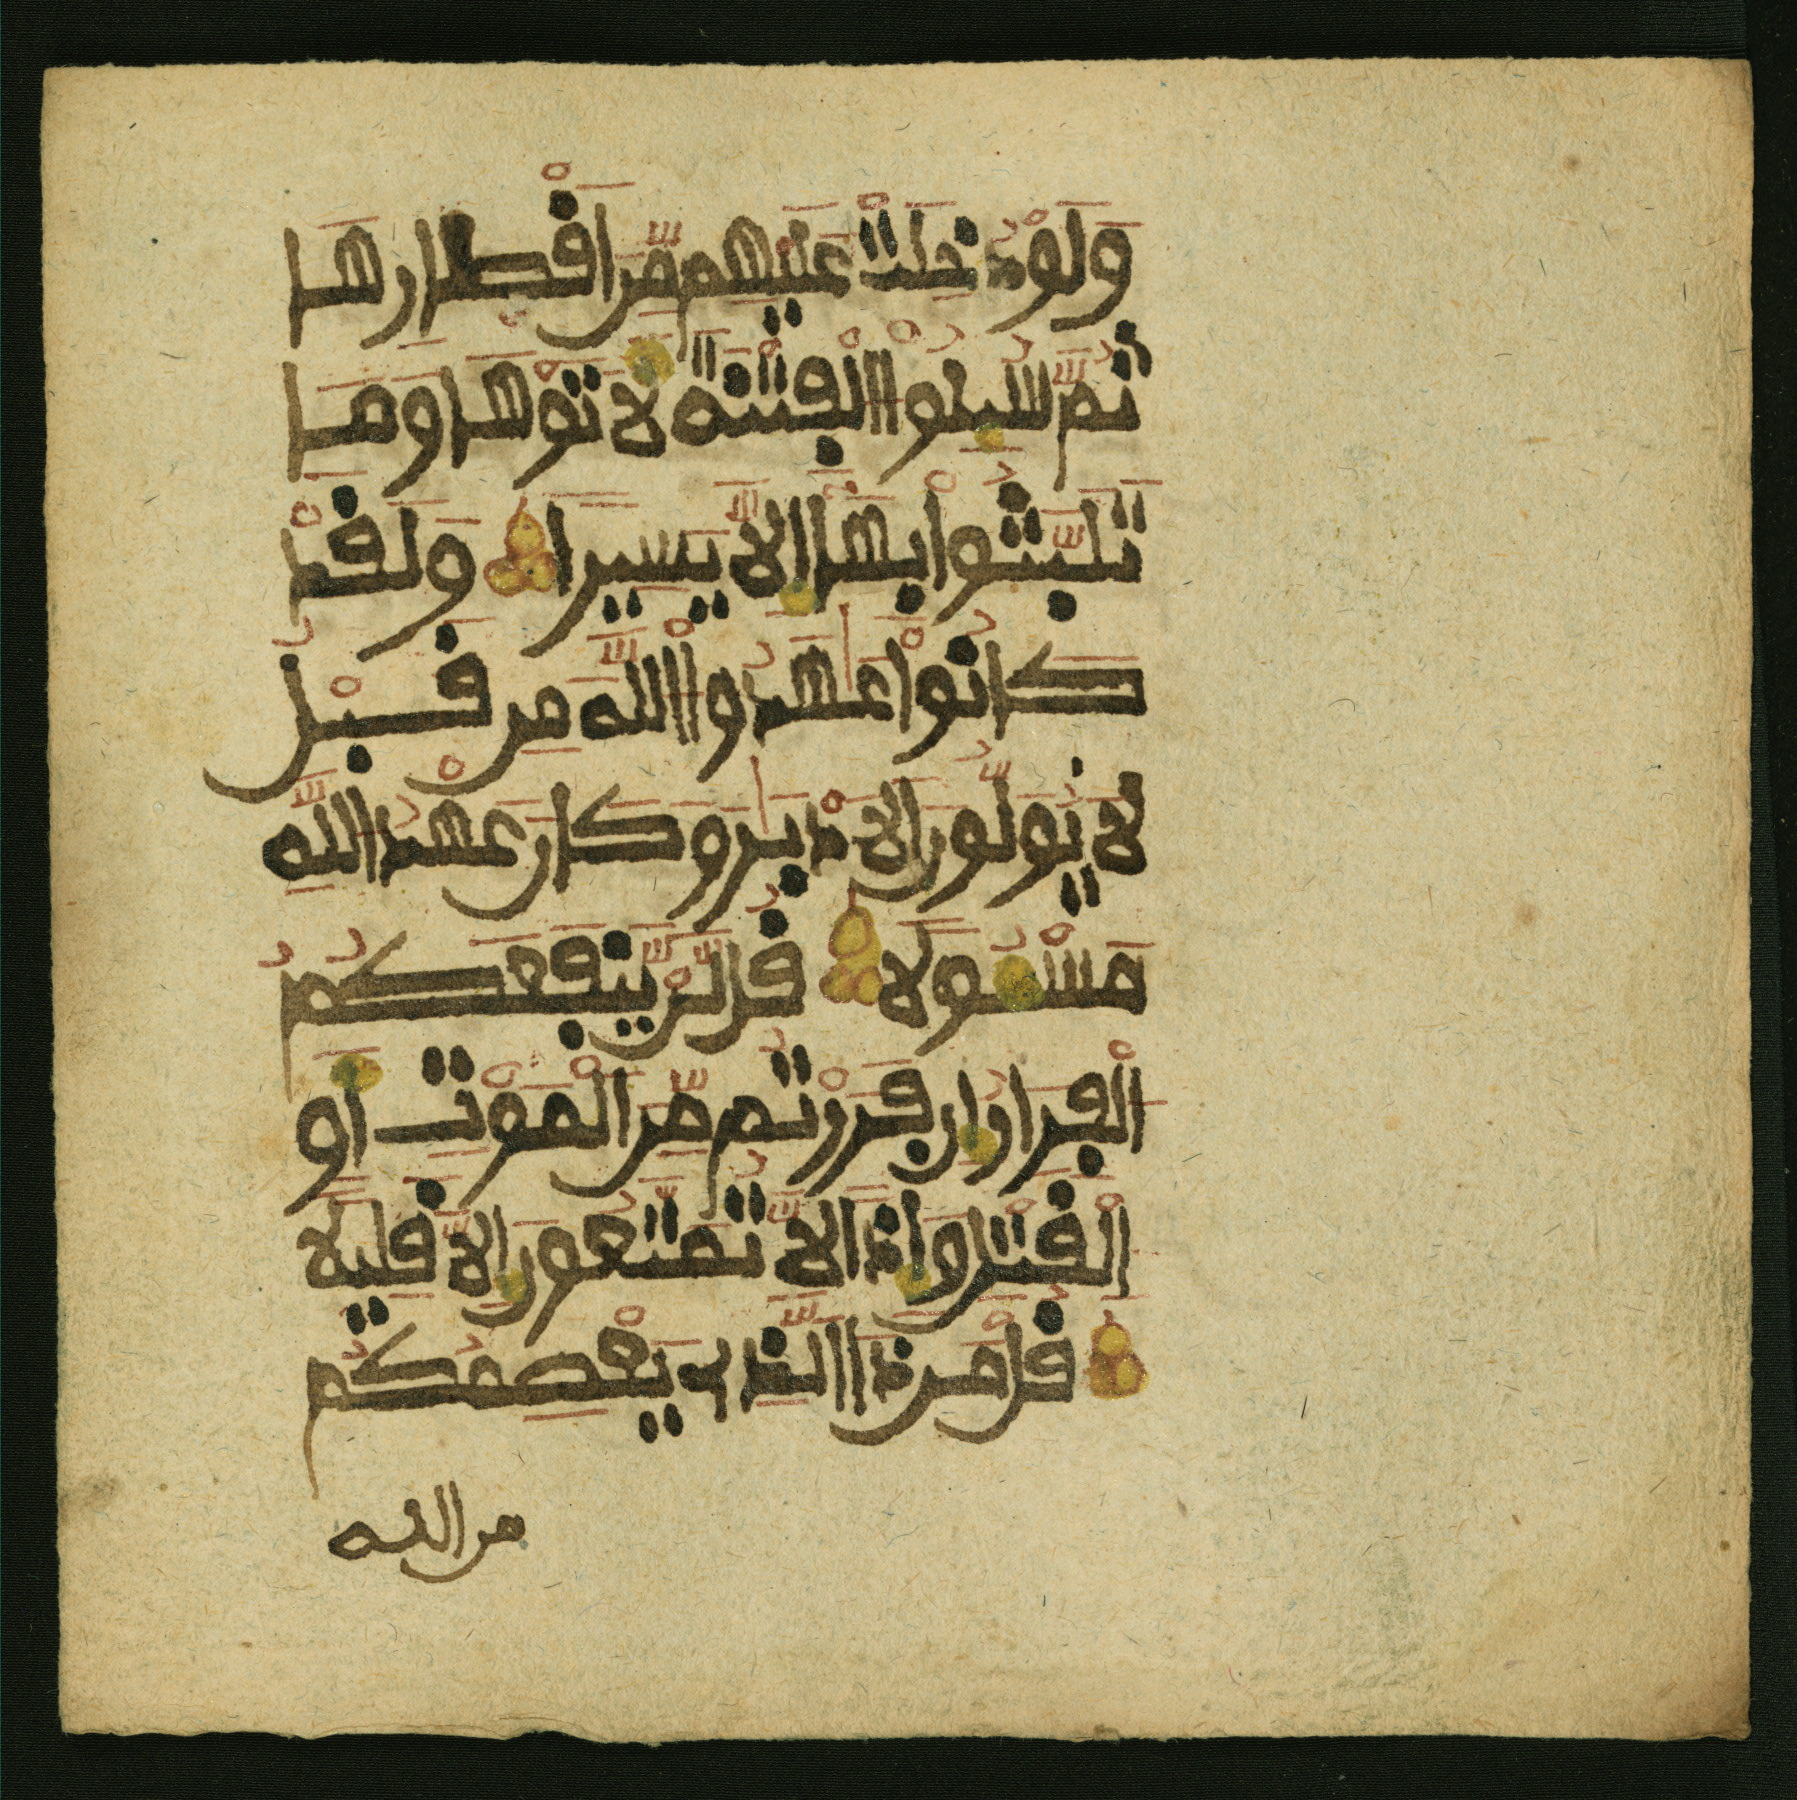 وَلَوْ دُخِلَتْ عَلَيْهِم مِّنَ اَقْطارِهَا
ثُمَّ سُئِلُواْ اُالْفِتْنَةَ لَأَتَوْهَا وَمَا
تَلَبَّثُواْ بِهَا إِلاَّ يَسِيراً وَلَقَدْ
كَانُواْ عَٰهَدُواْ اُاللَّهَ مِن قَبْلُ
لَا يُوَلُّونَ الَادْبَٰرَ وَكَانَ عَهْدُ اللَّهِ
مَسْـُٔولاً قُل لَّنْ يَّنفَعَكُمُ
اُالْفِرَارُ إِن فَرَرْتُم مِّنَ الْمَوْتِ أَوِ
اِلْقَتْلِ وَإِذاً لاَّ تُمَتَّعُونَ إِلاَّ قَلِيلاً
قُلْ مَن ذَا اَالَّذِى يَعْصِمُكُم
من الله